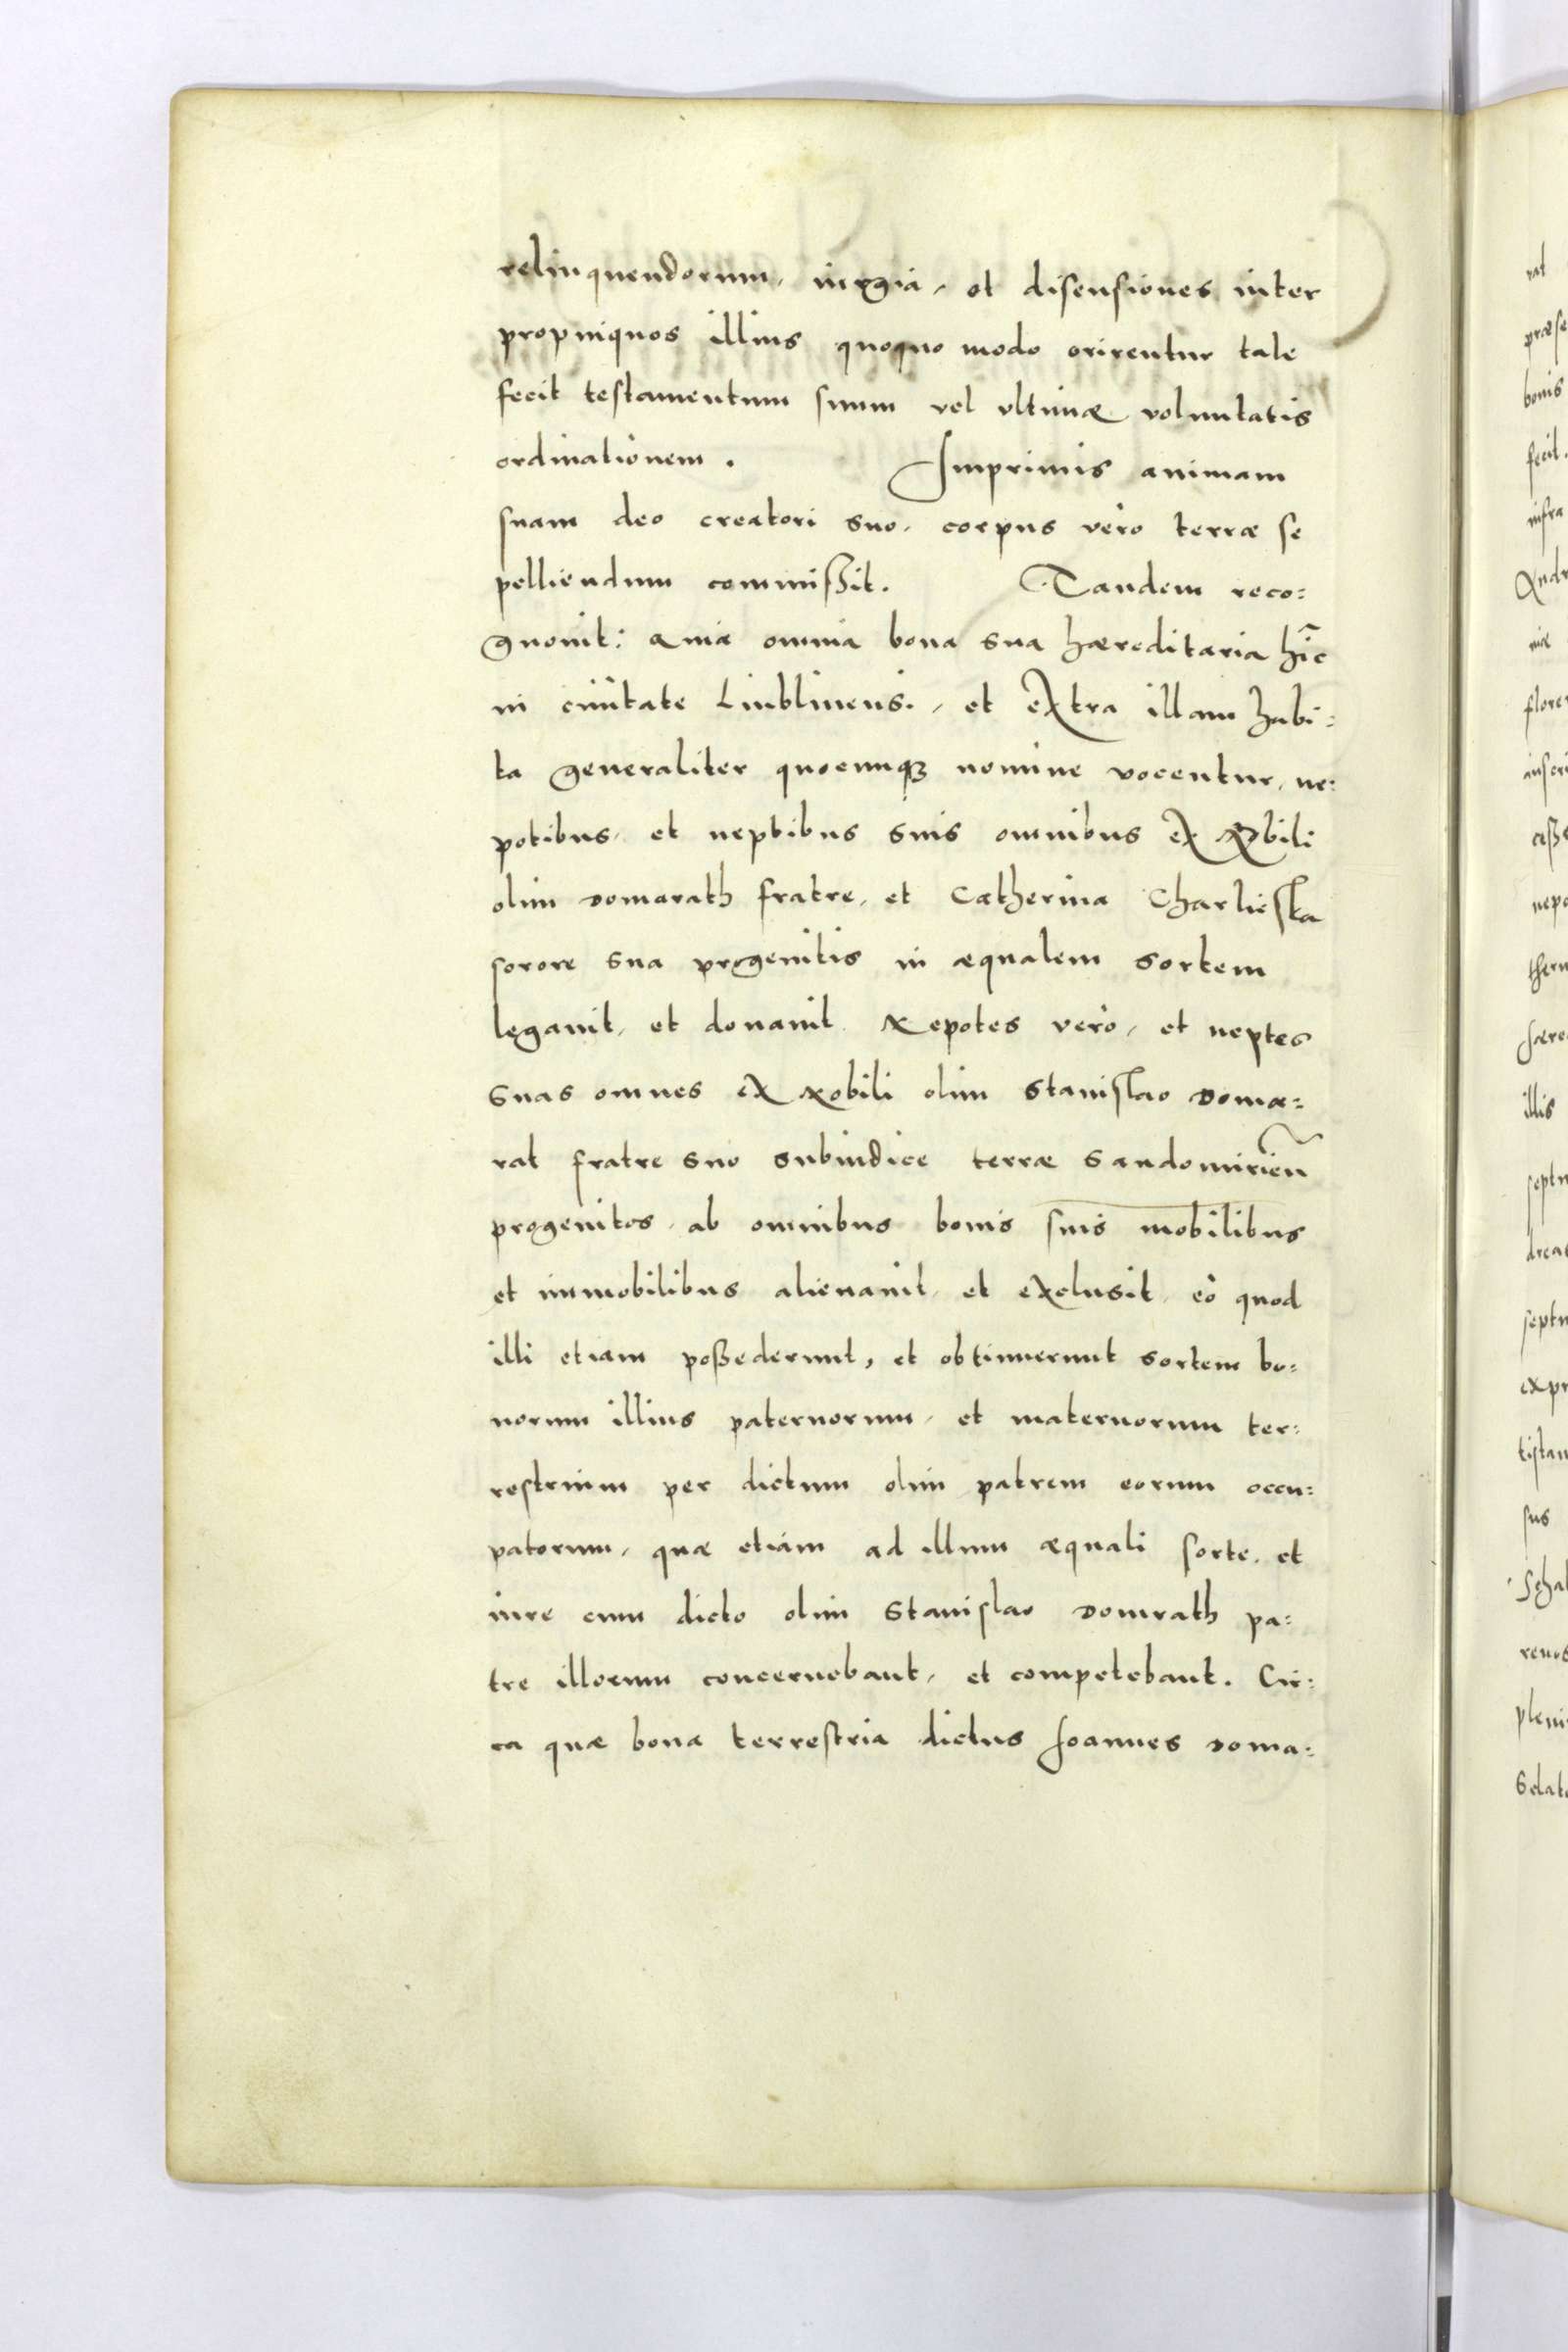 relinquendorum, iurgia, et disensiones inter
propinquos illius quoquo modo orirentur tale
fecit testamentum suum vel vltimæ voluntatis
ordinationem. Imprimis animam
suam deo creatori suo, corpus vero terræ se
pelliendum commißit. Tandem reco:
gnouit: Quia omnia bona sua hæreditaria hic
in ciuitate Liublinens., et extra illam habi:
ta generaliter quocunque nomine vocentur, ne:
potibus, et neptibus suis omnibus ex Nobili
olim Domarath fratre, et Catherina Charlieska
sorore sua progenitis in æqualem sortem
legauit, et donauit. Nepotes vero, et neptes
suas omnes ex Nobili olim Stanislao Doma:
rat fratre suo Subiudice terræ Sandomirien
progenitos, ab omnibus bonis suis mobilibus
et immobilibus alienauit, et exclusit, eo quod
illi etiam poßederunt, et obtinuerunt sortem bo:
norum illius paternorum, et maternorum ter:
restrium per dictum olim patrem eorum occu:
patorum, quæ etiam ad illum æquali sorte, et
iure cum dicto olim Stanislao Domrath pa:
tre illorum concernebant, et competebant. Cir:
ca quæ bona terrestria dictus Joannes Doma: